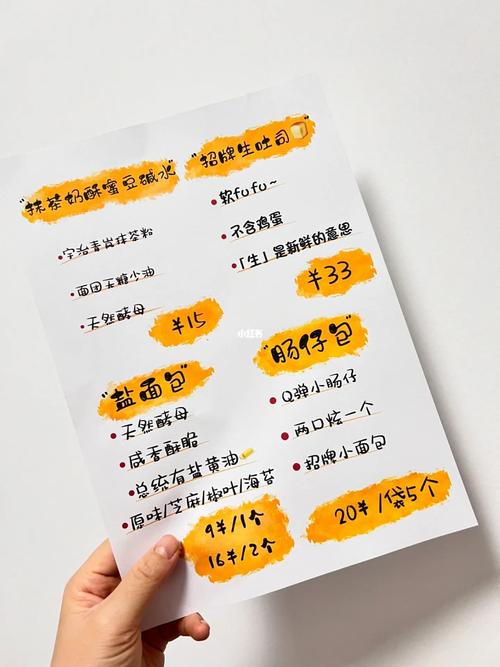 "抹茶奶酥蜜豆碱水"
宇治青岚抹茶粉
面团无糖少油
天然酵母
¥15
"招牌生吐司"
软fufu~
不含鸡蛋
「生」是新鲜的意思
¥33
"盐面包"
天然酵母
咸香酥脆
总统有盐黄油
原味/芝麻/椒叶/海苔
9¥/1个
16¥/2个
"肠仔包"
Q弹小肠仔
两口炫一个
招牌小面包
20¥/袋5个
小红书